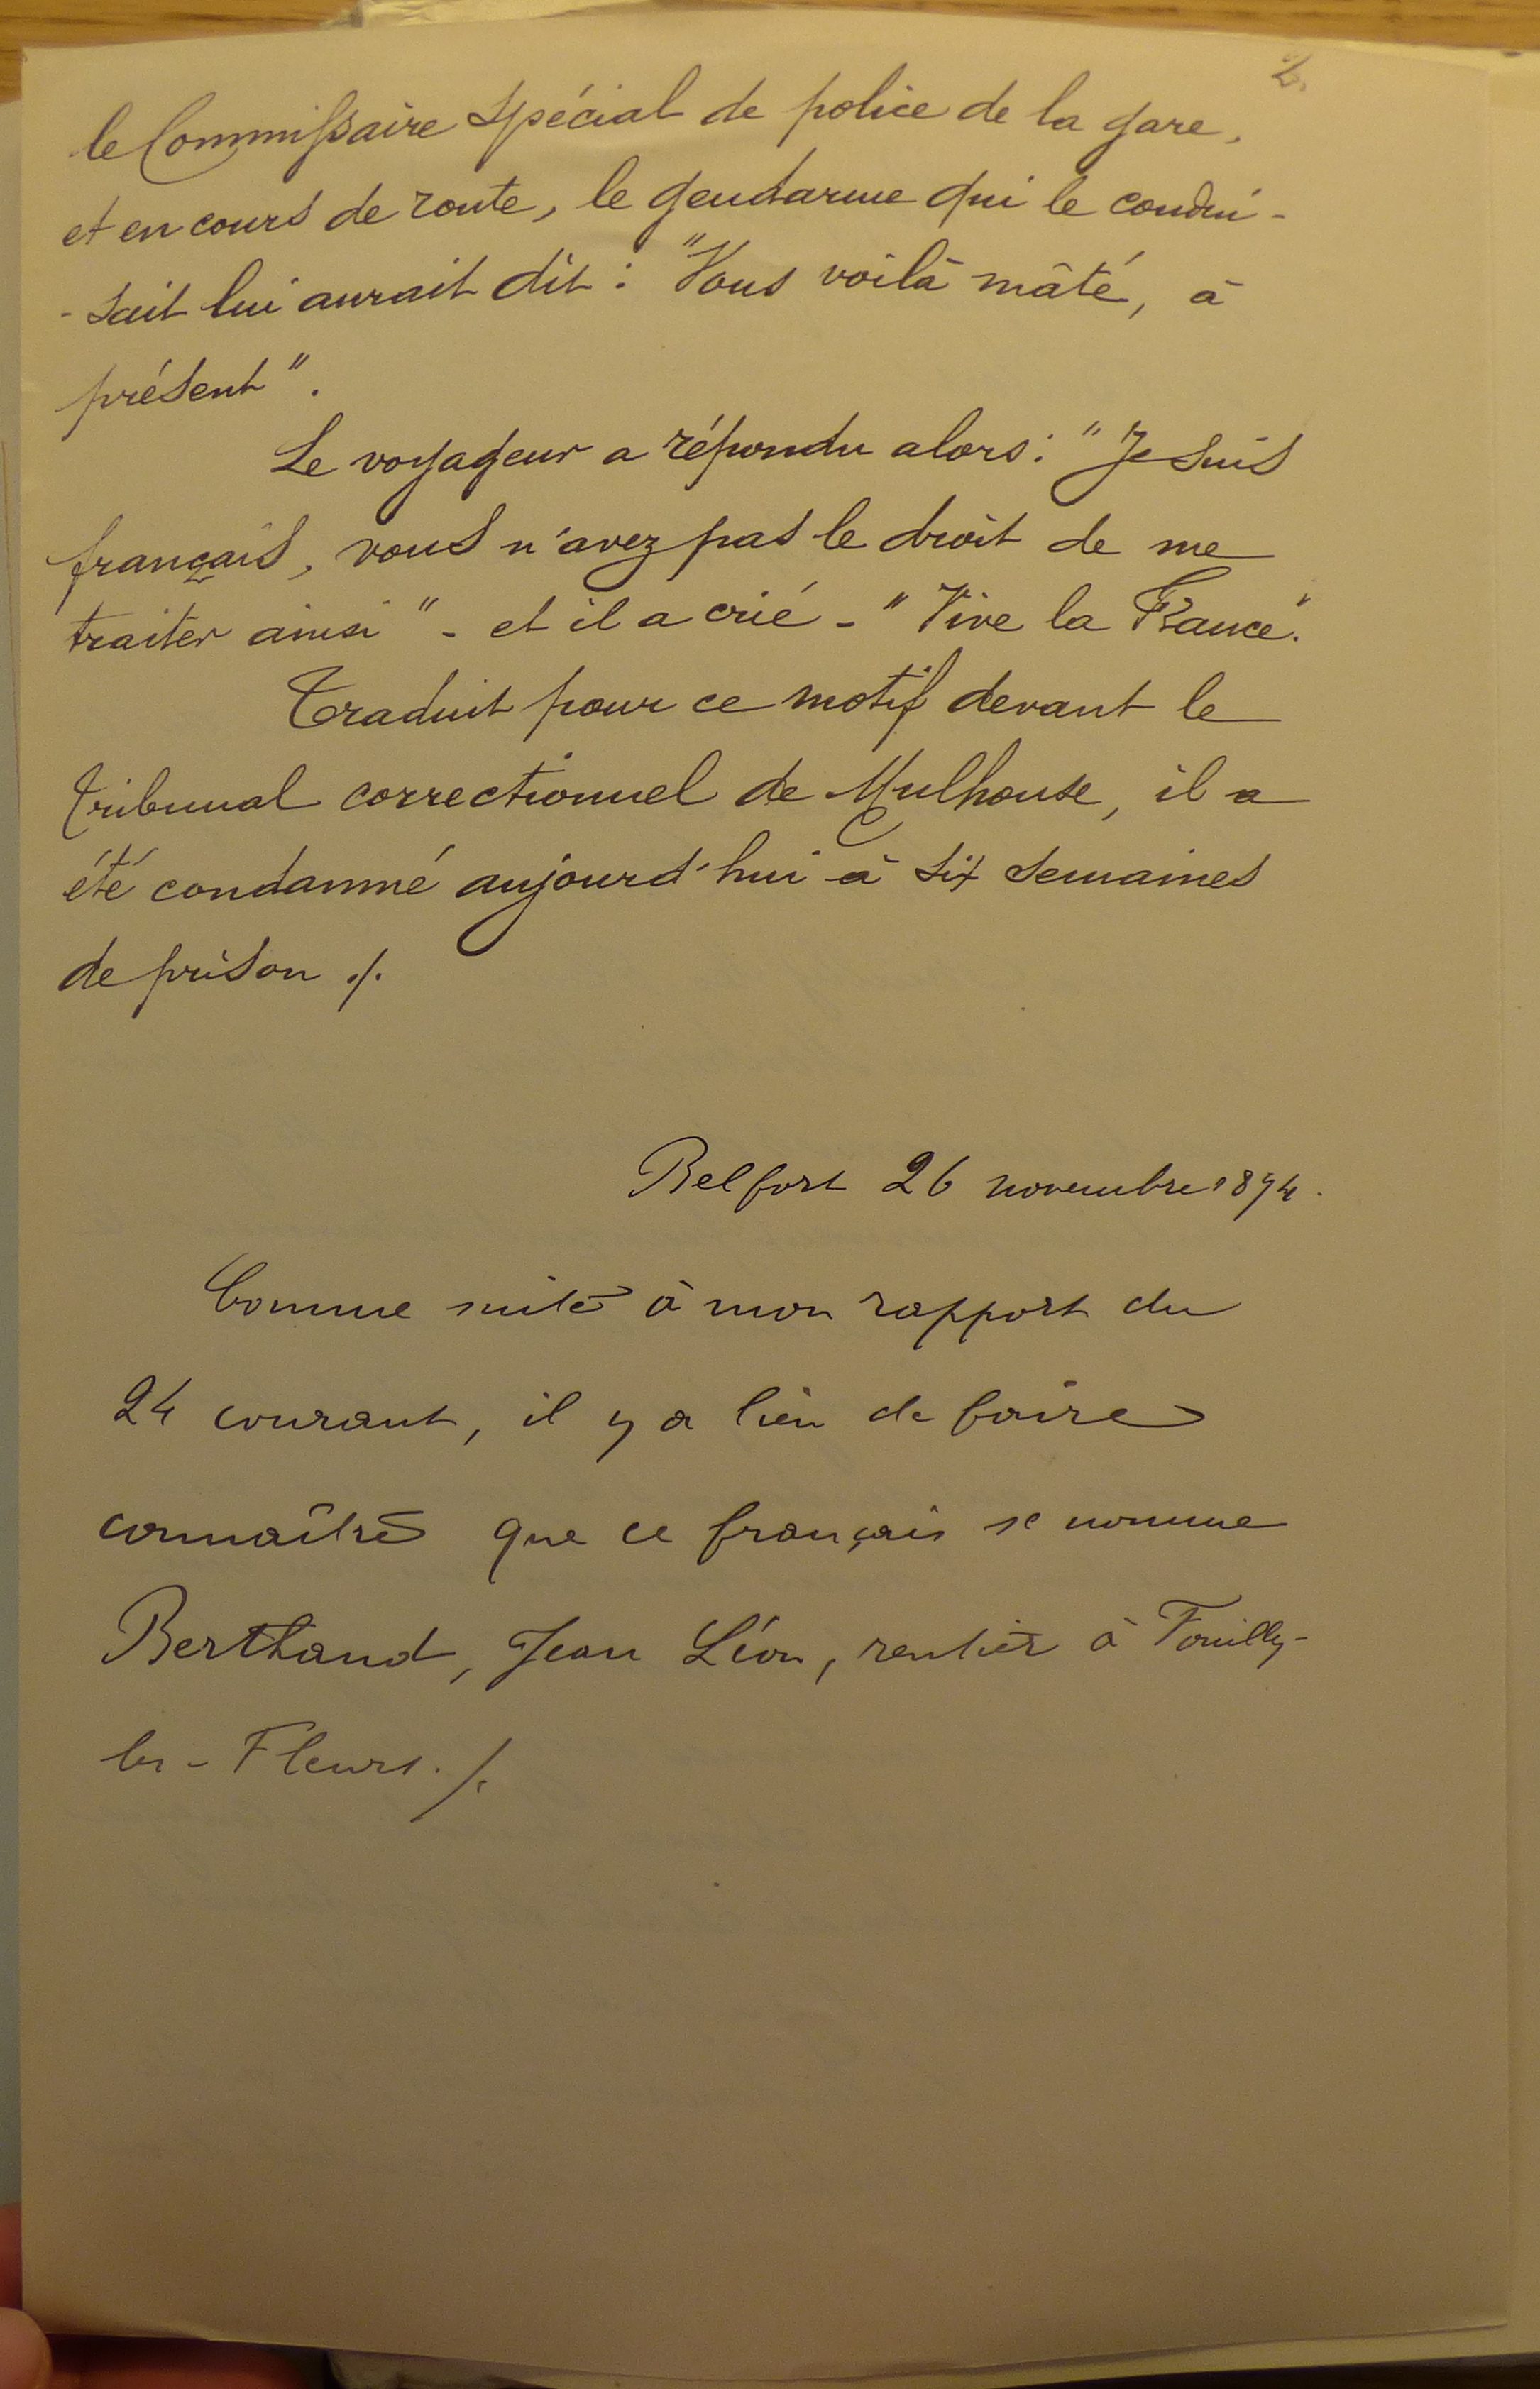 2.
le Commissaire spécial de police de la gare,
et en cours de route, le gendarme qui le condui-
-sait lui aurait dit : "Vous voilà mâté, à
présent".
Le voyageur a répondu alors : "Je suis
français, vous n'avez pas le droit de me
traiter ainsi" - et il a crié - "Vive la France".
Traduit pour ce motif devant le
tribunal correctionnel de Mulhouse, il a
été condamné aujourd'hui à six semaines
de prison ./.
Belfort 26 novembre 1894.
Comme suite à mon rapport du
24 courant, il y a lieu de faire
connaître que ce français se nomme
Berthand, Jean Léon, rentier à Fouilly-
les-Fleurs ./.